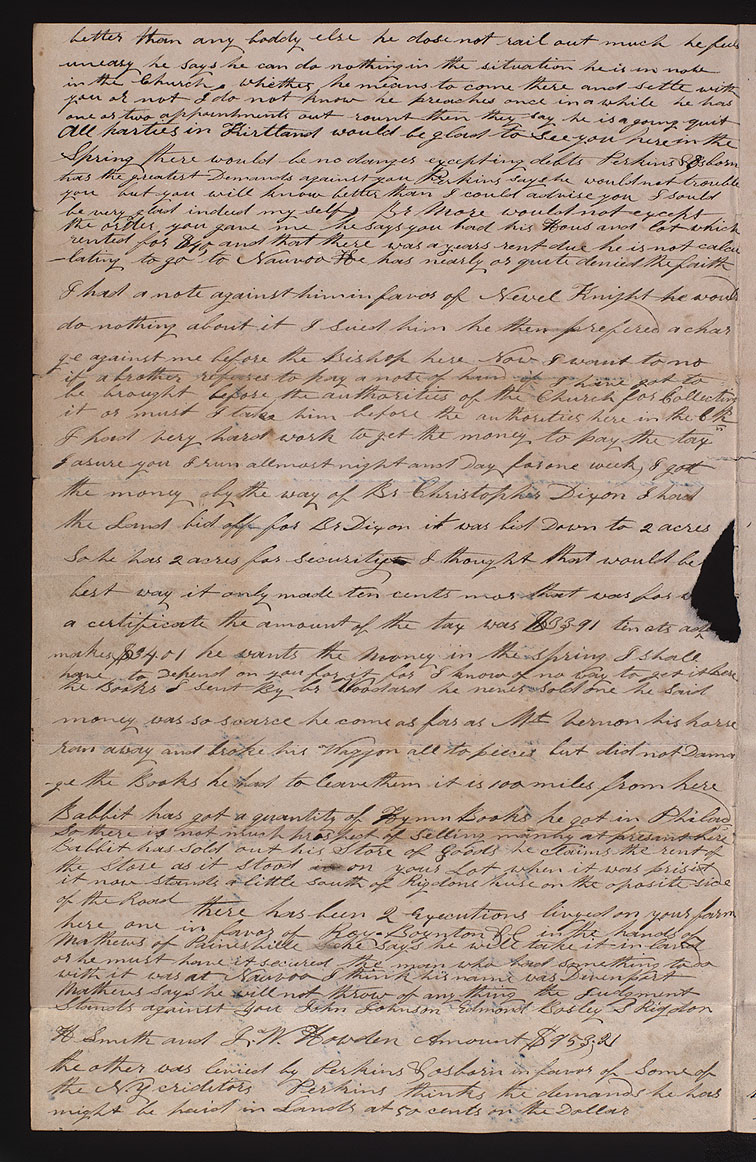 better than any boddy else he dose not rail out much he feels
uneasy he says he can do nothing in the situation he is in now
in the Church, whether he means to come there and settle with
you or not I do not know he preaches once in a while he has
one or two appointments out rount then they say he is a going quit
all parties in Kirtland would be glad to see you here in the
Spring there would be no danger excepting debts Perkins & Osborn
has the greatest Demands against you Perkins says he would not trouble
you but you will know better than I could advise you I sould
be very glad indeed my self, Br More would not except
the order you gave me he says you had his Hous and lot which
rented for and that there was a years rent due he is not calcu
-lating to go to Nauvoo He has nearly or quite denied the faith
I had a note against him in favor of Newel Knight he would
do nothing about it I sued him he then prefered a char
ge against me before the Bishop here Now I want to no
if a brother refuses to pay a note of hand if I have got to
be brought before the authorities of the Church for Collecting
it or must I take him before the authorities here in the Ch
I had very hard work to get the money to pay the tax
I asure you I run allmost night and Day for one week, I got
the money by the way of Br Christopher Dixon I had
the Land bid off for Br Dixon it was bid Down to 2 acres
So he has 2 acres for security I thought that would be
best way it only made ten cents mor that was for
a certificate the amount of the tax was $33,91 ten cts
makes $34.01 he wants the money in the spring I shall
have to Depend on you for it for I know of no way to get it here
he Books I sent By br Woodard he never sold one he said
money was so scarce he come as far as Mt Vernon his horse
ran away and broke his Waggon all to pieces but did not Dama
-ge the Books he had to leave them it is 100 miles from here
Babbit has got a quantity of Hymn Books he got in Philad
So there is not much prospect of selling manny at present here
Babbit has sold out his Store of Goods he claims the rent of
the Store as it stood on your Lot when it was prisid
it now stands a little south of Rigdons huse on the oposite side
of the Road there has been 2 Executions livyed on your farm
here one in favor of Boynton & C in the hands of
Mathews of Painesville he says he will take it in land
or he must have it secured the man who had something to do
with it was at Nauvoo I think his name was Divenport
Mathews says he will not throw of any thing the Judgment
Stands against you John Johnson Edmond Bosley S Rigdon
H Smith and J. W. Howden Amount $953,21
the other was levied by Perkins & Osborn in favor of Some of
the N Y criditors Perkins thinks the demands he has
might be paid in Lands at 50 cents on the Dollar